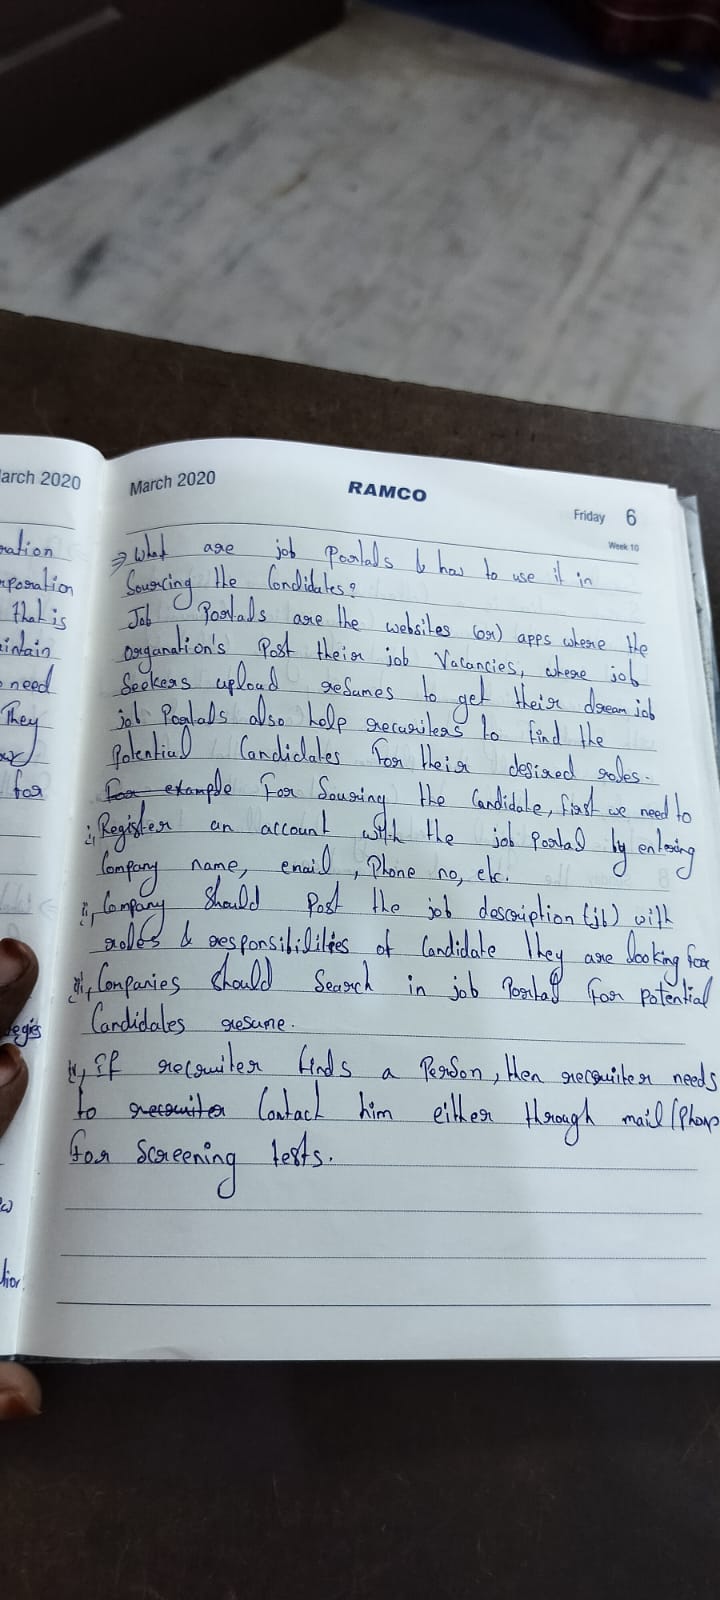 arch 2020
ration
rporation
that is
intain
need
They
for
egis
March 2020
RAMCO
Friday 6
Week 10
⇒ What are job Portals & how to use it in
Sourcing the Candidates?
Job Portals are the websites (or) apps where the
organation's Post their job Vacancies, where job
Seekers upload resumes to get their dream job
job Portals also help recuriters to find the
Potential Candidates for their desired roles.
For example For Souring the Candidate, first we need to
i, Register an account with the job Portal by entering
Company name, email, Phone no, etc.
ii, Company Should Post the job description (jb) with
roles & responsibilities of Candidate they are looking for
iii, Companies Should Search in job Portal for potential
Candidates resume.
iv, If recruiter finds a Person, then recruiter needs
to recruiter Contact him either through mail/Phone
for Screening tests.